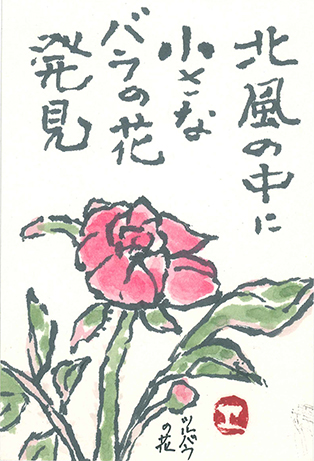 北風の中に
小さな
バラの花
発見
ツルバラ
の花